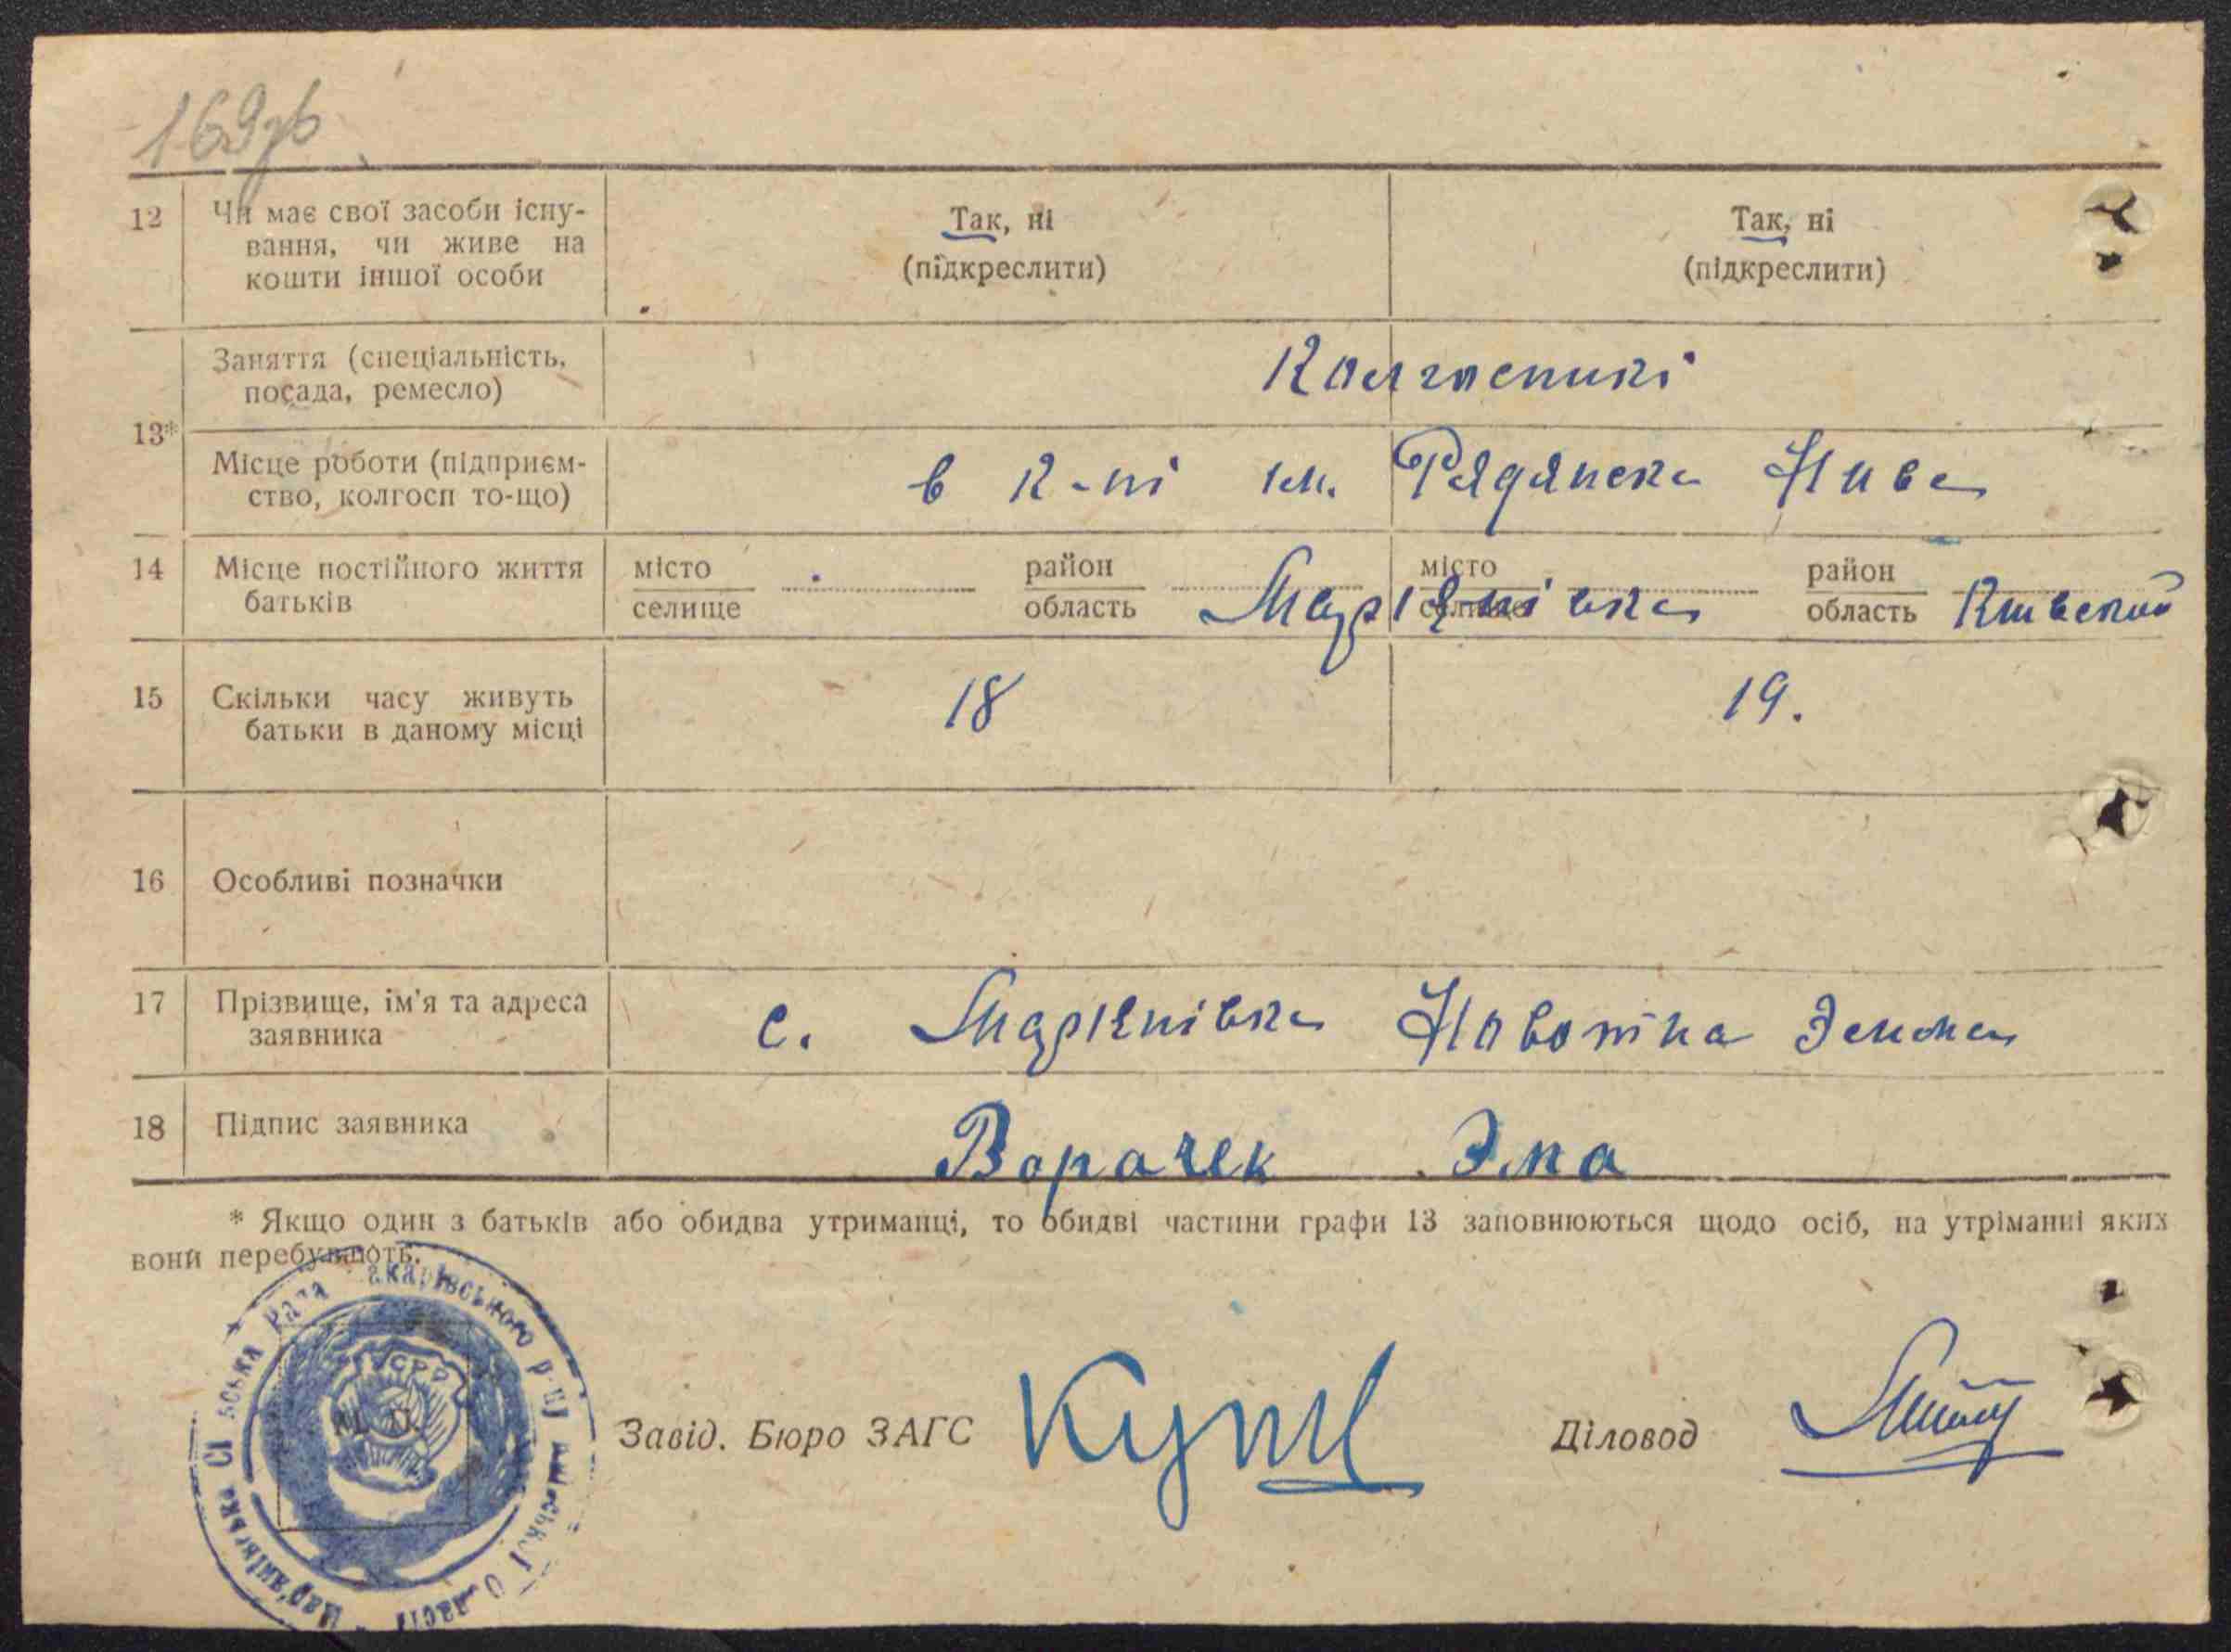 169зв
12 Чи має свої засоби існу-
вання, чи живе на
кошти іншої особи
Так, ні
(підкреслити)
Так, ні
(підкреслити)
13*
Заняття (спеціальність,
посада, ремесло)
Колгоспникі
Місце роботи (підприєм-
ство, колгосп то-що)
в к-пі ім. Радянска Нива
14 Місце постійного життя
батьків
місто
селище
район
область
місто
селище
район
область
Мар'янівка Киевский
15 Скільки часу живуть
батьки в даному місці
18
19.
16 Особливі позначки
17 Прізвище, ім'я та адреса
заявника
с. Мар'янівка Новотна
18 Підпис заявника
Ворачек Эма
* Якщо один з батьків або обидва утриманці, то обидві частини графи 13 заповнюються щодо осіб, на утріманні яких
вони перебувають.
Мар'янівська Сільська Рада Макарівського р-ну Київської Області
УСРР
М. П.
Завід. Бюро ЗАГС
Діловод